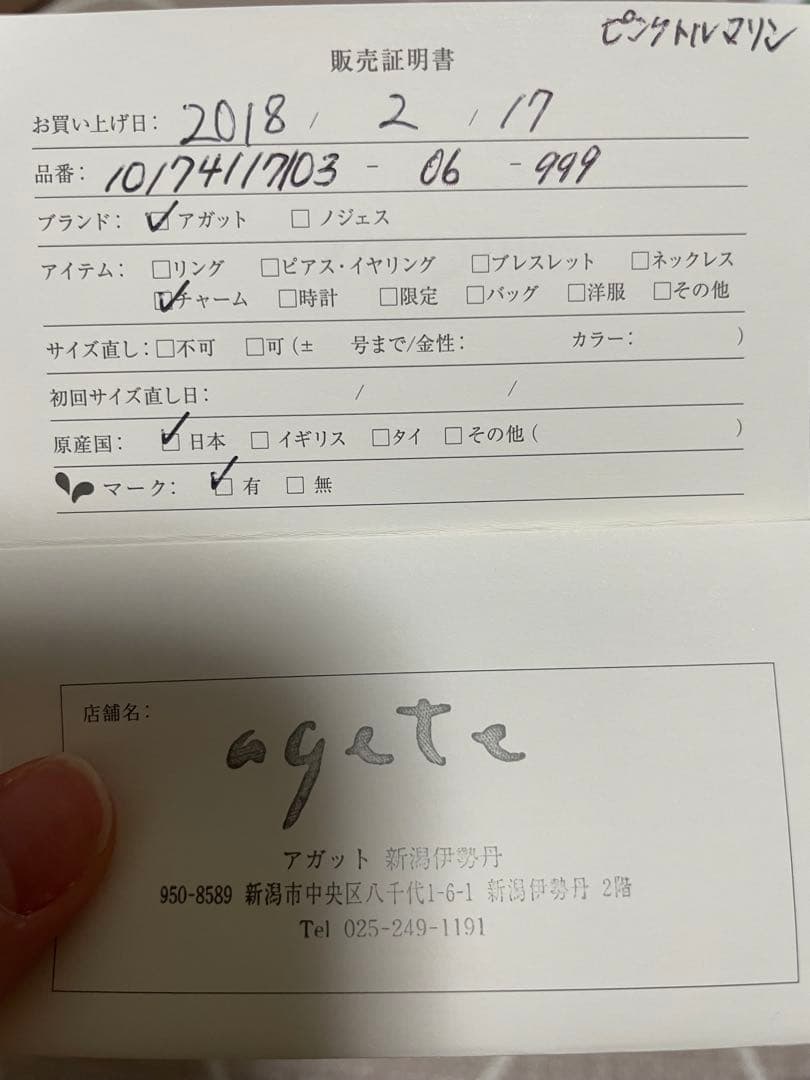 ピンクトルマリン
販売証明書
お買い上げ日： 2018 / 2 / 17
品番： 10174117103 - 06 - 999
ブランド： ☑アガット □ノジェス
アイテム： □リング □ピアス・イヤリング □ブレスレット □ネックレス
☑チャーム □時計 □限定 □バッグ □洋服 □その他
サイズ直し：□不可 □可（± 号まで/金性： カラー： ）
初回サイズ直し日： / /
原産国： ☑日本 □イギリス □タイ □その他（ ）
マーク： ☑有 □無
店舗名：
agete
アガット 新潟伊勢丹
950-8589 新潟市中央区八千代1-6-1 新潟伊勢丹 2階
Tel 025-249-1191